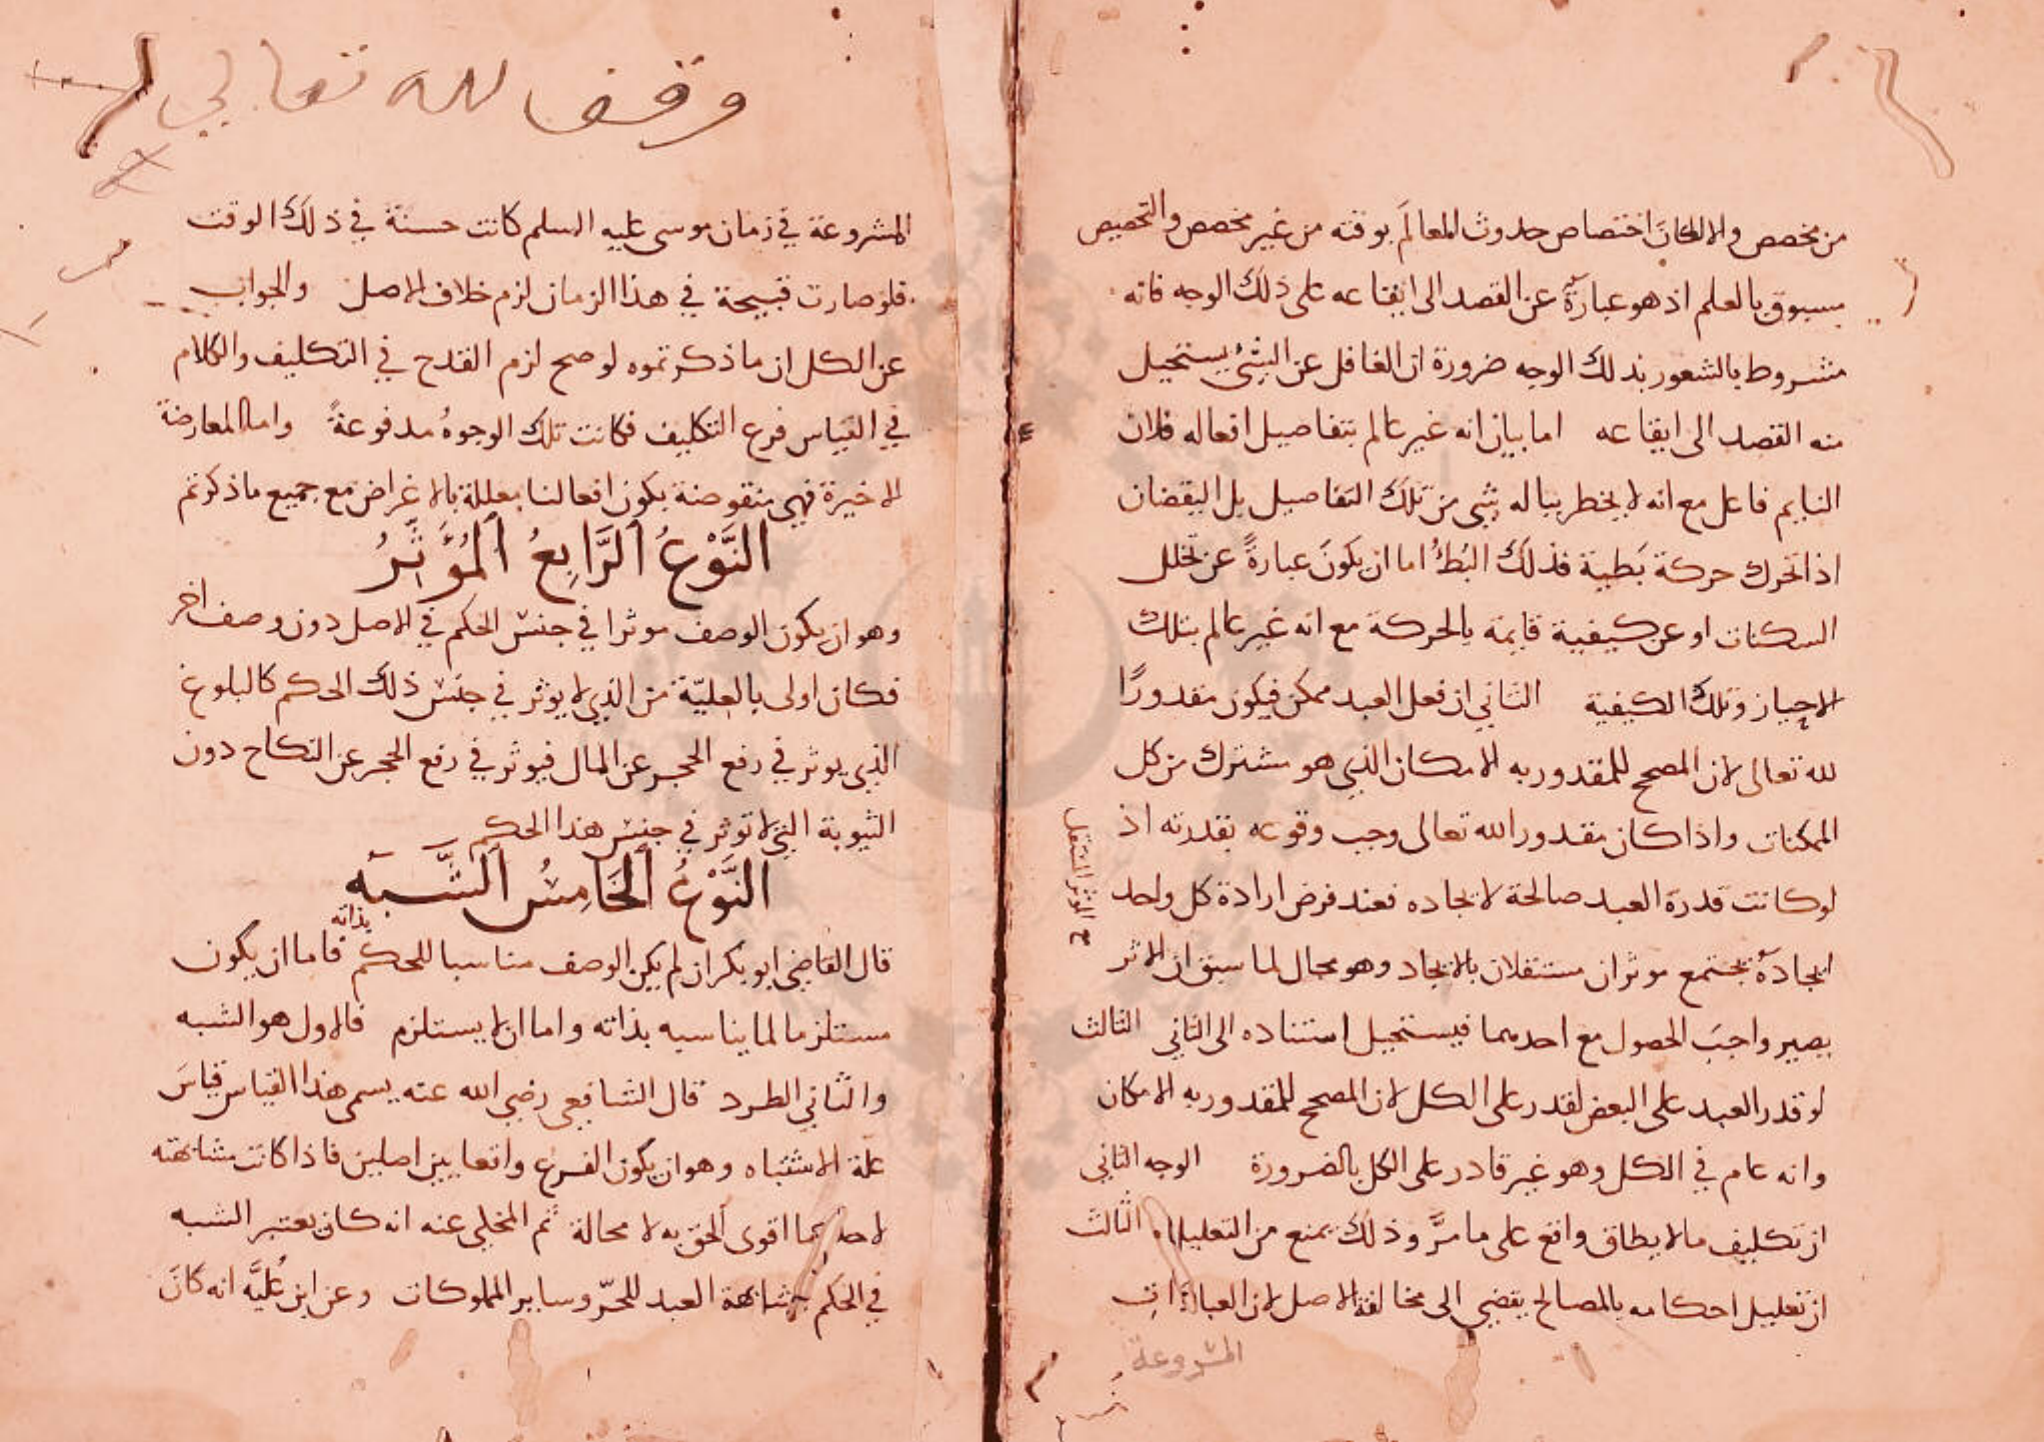 من مخصص والا لكان اختصاص حدوث العالم بوقته من غير مخصص والتخصيص
مسبوق بالعلم اذ هو عبارة عن القصد الى ايقاعه على ذلك الوجه فانه
مشروط بالشعور بذلك الوجه ضرورة ان الغافل عن الشئ يستحيل
منه القصد الى ايقاعه اما بيان انه غير عالم بتفاصيل افعاله فلان
النايم فاعل مع انه لا يخطر بباله شي من تلك التفاصيل بل اليقضان
اذا تحرك حركة بَطيية فذلك البُطؤُ اما ان يكونَ عبارةً عن تخلل
السكنات او عن كيفية قايمة بالحركة مع انه غير عالم بتلك
الاحياز وتلك الكيفية الثاني ان فعل العبد ممكن فيكون مقدورًا
لله تعالى لان المصحح للمقدوريه الامكان الذي هو مشترك من كل
الممكنات واذا كان مقدور الله تعالى وجب وقوعه بقدرته اذ
لو كانت قدرة العبد صالحة لايجاده فعند فرض ارادة كل واحد
ايجاده يجتمع موثران مستقلان بالايجاد وهو محال لما سبق ان الاثر
يصير واجبَ الحصول مع احدهما فيستحيل استناده الى الثاني الثالث
لو قدر العبد على البعض لقدر على الكل لان المصحح للمقدوريه الامكان
وانه عام في الكل وهو غير قادر على الكل بالضرورة الوجه الثاني
ان تكليف ما لا يطاق واقع على ما مرَّ وذلك يمنع من التعليل الثالث
ان تعليل احكامه بالمصالح يقضي الى مخالفة الاصل لان العبادات
المشروعة
ح الموثر المستقل
وقف لله تعالى
المشروعة في زمان موسى عليه السلم كانت حسنة في ذلك الوقت
فلو صارت قبيحة في هذا الزمان لزم خلاف الاصل والجواب
عن الكل ان ما ذكرتموه لو صح لزم القدح في التكليف والكلام
في القياس فرع التكليف فكانت تلك الوجوهُ مدفوعةً واما المعارضة
الاخيرة فهي منقوضة بكون افعالنا معللة بالاغراض مع جميع ما ذكرتم
النَّوْعُ الرَّابِعُ المُؤَثِّرُ
وهو ان يكون الوصف موثرا في جنس الحكم في الاصل دون وصف اخر
فكان اولى بالعِليّة من الذي لا يوثر في جنس ذلك الحكم كالبلوغ
الذي يوثر في رفع الحجر عن المال فيوثر في رفع الحجر عن النكاح دون
الثيوبة التي لا توثر في جنس هذا الحكم
النَّوْعُ الخَامِسُ الشَّبَه
قال القاضي ابو بكر ان لم يكن الوصف مناسبا للحكم بذاته فاما ان يكون
مستلزما لما يناسبه بذاته واما ان لا يستلزم فالاول هو الشبه
والثاني الطرد قال الشافعي رضي الله عنه يسمى هذا القياس قياسَ
علة الاشتباه وهو ان يكون الفرع واقعا بين اصلين فاذا كانت مشابهته
لاحدهما اقوى اَلحق به لا محالة ثم المحكي عنه انه كان يعتبر الشبه
في الحكم كمشابهة العبد للحرّ وساير المملوكات وعن ابن عُليَّه انه كان